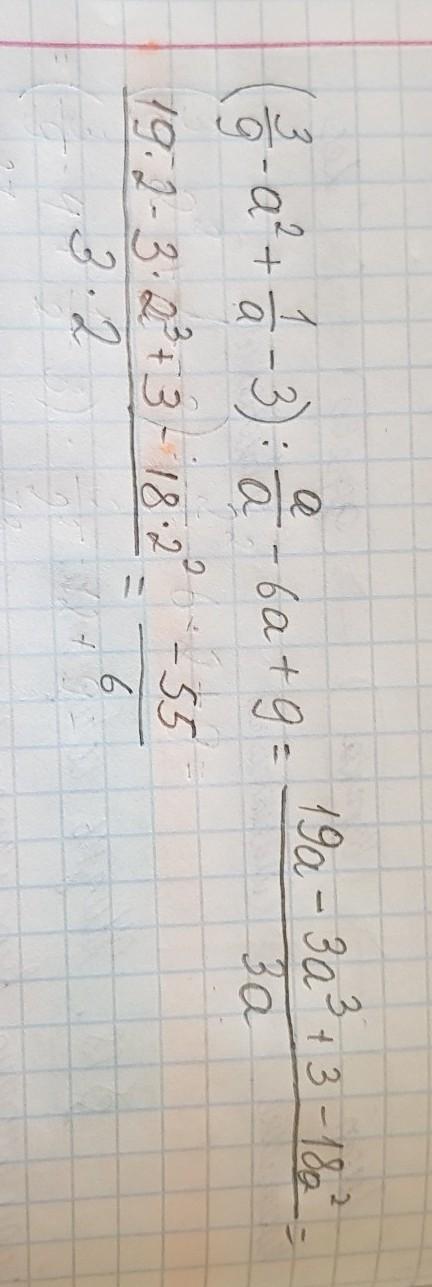 (3/9 - a² + 1/a - 3) : a/a - 6a + 9 = (19a - 3a³ + 3 - 18a²)/(3a) =
(19·2 - 3·2³ + 3 - 18·2²)/(3·2) = -55/6